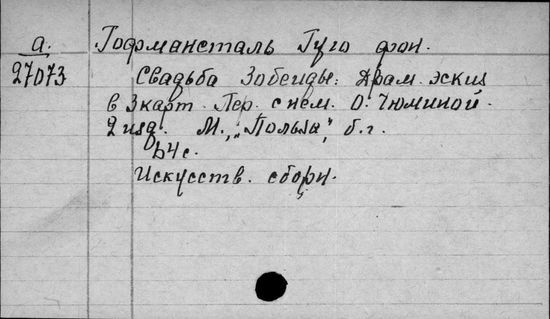 а. Гофмансталь Гуго фон.
27073 Свадьба Зобеиды: Драм. эскиз
в 3 карт. Пер. с нем. О. Чюминой.
2 изд. М., "Польза", б. г.
64 с.
Искусств. сборн.